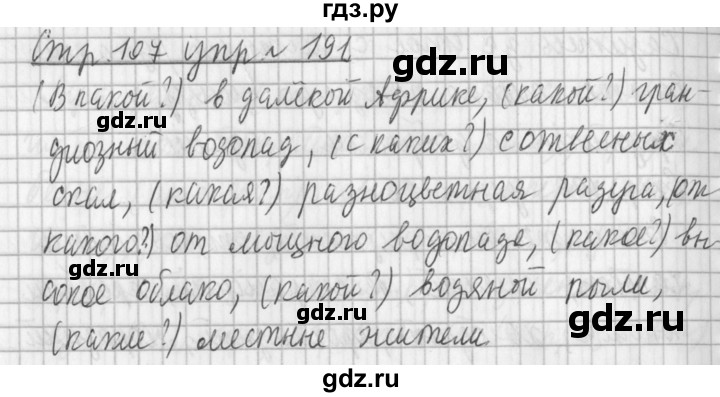 гдз.ру
Стр. 107 упр. № 191
(В какой?) в далёкой Африке, (какой?) гран-
gdz.ru gdz.ru
диозный водопад, (с каких?) с отвесных
скал, (какая?) разноцветная радуга, (от
какого?) от мощного водопада, (какое?) вы
gdz.ru
сокое облако, (какой?) водяной пыли,
gdz.ru
(какие?) местные жители
gdz.ru